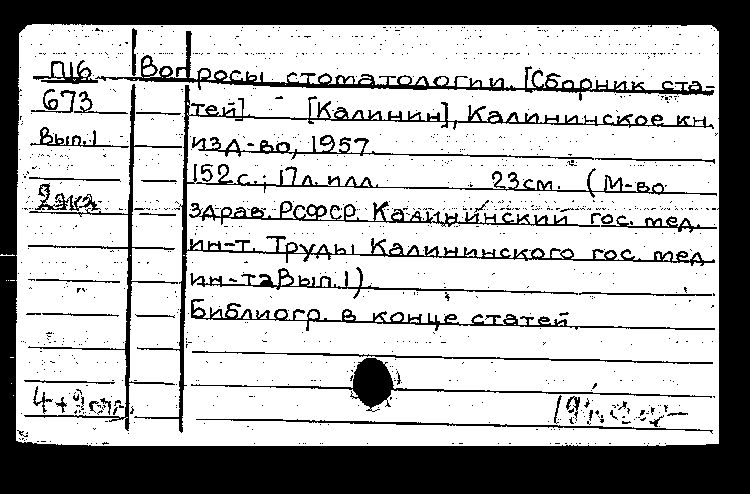 П16 Вопросы стоматологии. [Сборник ста-
673 тей]. [Калинин], Калининское кн.
Вып.1 изд-во, 1957.
152 с.; 17 л. илл. 23см. (М-во
2экз. здрав. РСФСР. Калининский гос. мед.
ин-т. Труды Калининского гос. мед
ин-та Вып.1).
Библиогр. в конце статей.
4+2